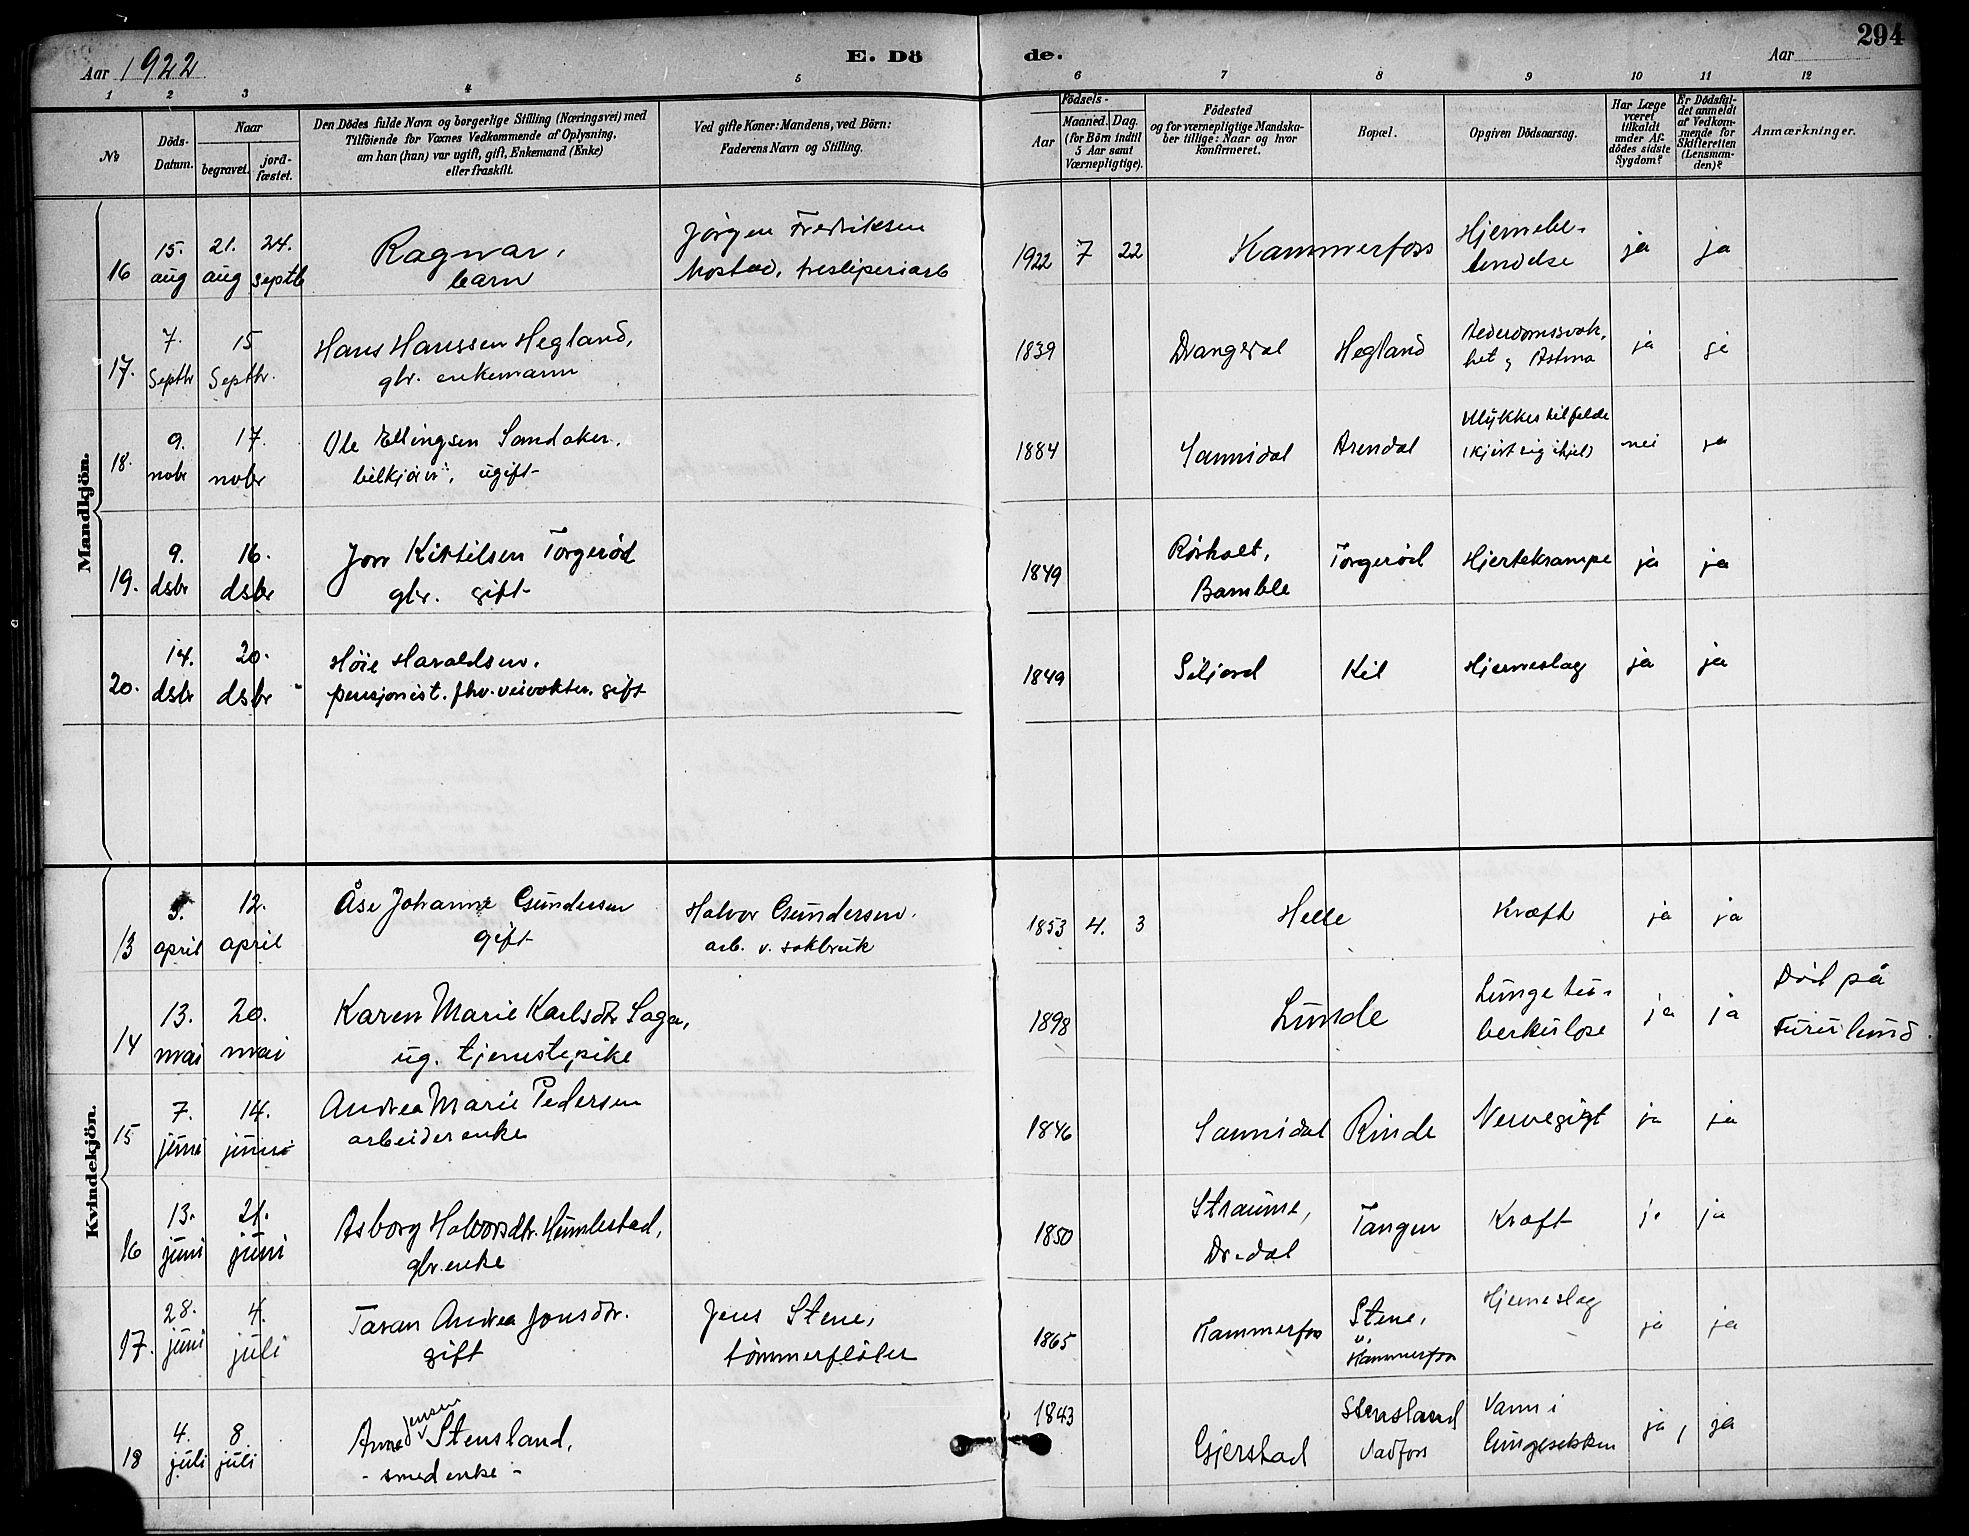 Aar 1922
E. Dö
de.
Aar
294
1 2 3 4 5 6 7 8 9 10 11 12
No
Döds-
Datum.
Naar
begravet.
jord-
fæstet.
Den Dödes fulde Navn og borgerlige Stilling (Næringsvei) med
Tilföiende for Voxnes Vedkommende af Oplysning,
om han (hun) var ugift, gift, Enkemand (Enke)
eller fraskilt.
Ved gifte Koner: Mandens, ved Börn:
Faderens Navn og Stilling.
Födsels-
Aar
Maaned. Dag.
(for Börn indtil
5 Aar samt
Værnepligtige).
Födested
og for værnepligtige Mandska-
ber tillige: Naar og hvor
konfirmeret.
Bopæl.
Opgiven Dödsaarsag.
Har Læge
været
tilkaldt
under Af-
dödes sidste
Sygdom?
Er Dödsfal-
det anmeldt
af Vedkom-
mende for
Skifteretten
(Lensman-
den)?
Anmærkninger.
Mandkjön.
15. 21. 24. Ragnar, Jörgen Fredriksen Hjernebe-
16 aug aug septb barn tresliperiarb 1922 7 22 Kammerfoss tendelse ja ja
7. 15 Hans Hanssen Hegland, Alderdomssvak-
17. Septbr Septbr. gbr. enkemann 1839 Drangedal Hegland het, Astma ja ja
9. 17. Ole Ellingsen Sandaker, Ulykkestilfelde
18. nobr nobr bilkjører, ugift 1884 Sannidal Arendal (kjørt sig ihjel) nei ja
9. 16. Jon Kittilsen Torgerød Rørholt,
19. dsbr dsbr gbr. gift 1849 Bamble Torgerød Hjertekrampe ja ja
14. 20. Høie Haraldsen,
20. dsbr dsbr pensjonist. fhv. veivokter, gift 1849 Siljord Kil Hjerneslag ja ja
Kvindekjön.
5. 12. Åse Johanne Gundersen Halvor Gundersen,
13 april april gift arb. v. sakbruk 1853 4. 3 Helle Kræft ja ja
13. 20. Karen Marie Karlsdtr Saga, Lungetu- Död på
14 mai mai ug. tjenestepike 1898 Lunde berkulose ja ja Furulund.
7. 14. Andrea Marie Pedersen
15 juni juni arbeiderenke 1846 Sannidal Rinde Nervegigt ja ja
13. 21. Asborg Halvorsdtr. Humlestad, Straume,
16 juni juni gbr. enke 1850 Dr.dal Tangen Kræft ja ja
28. 4. Taran Andrea Jonsdtr. Jens Stene, Stene,
17. juni juli gift tømmerfløter 1865 Kammerfos v. Kammerfos Hjerneslag ja ja
4. 8 Anne Jensen Stensland, 1843 Stensland Vann i
18 juli juli - smedenke - Gjerstad Vadfoss lungesekken ja, ja